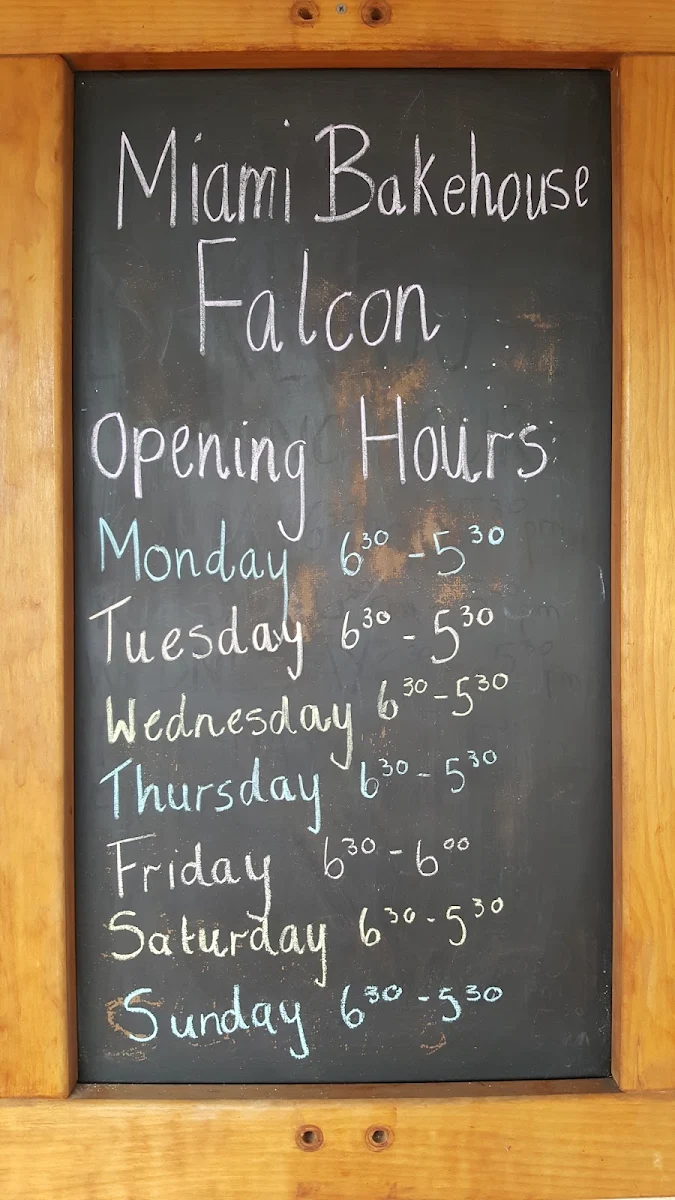 Miami Bakehouse
Falcon
Opening Hours
Monday 6³⁰ - 5³⁰
Tuesday 6³⁰ - 5³⁰
Wednesday 6³⁰ - 5³⁰
Thursday 6³⁰ - 5³⁰
Friday 6³⁰ - 6⁰⁰
Saturday 6³⁰ - 5³⁰
Sunday 6³⁰ - 5³⁰